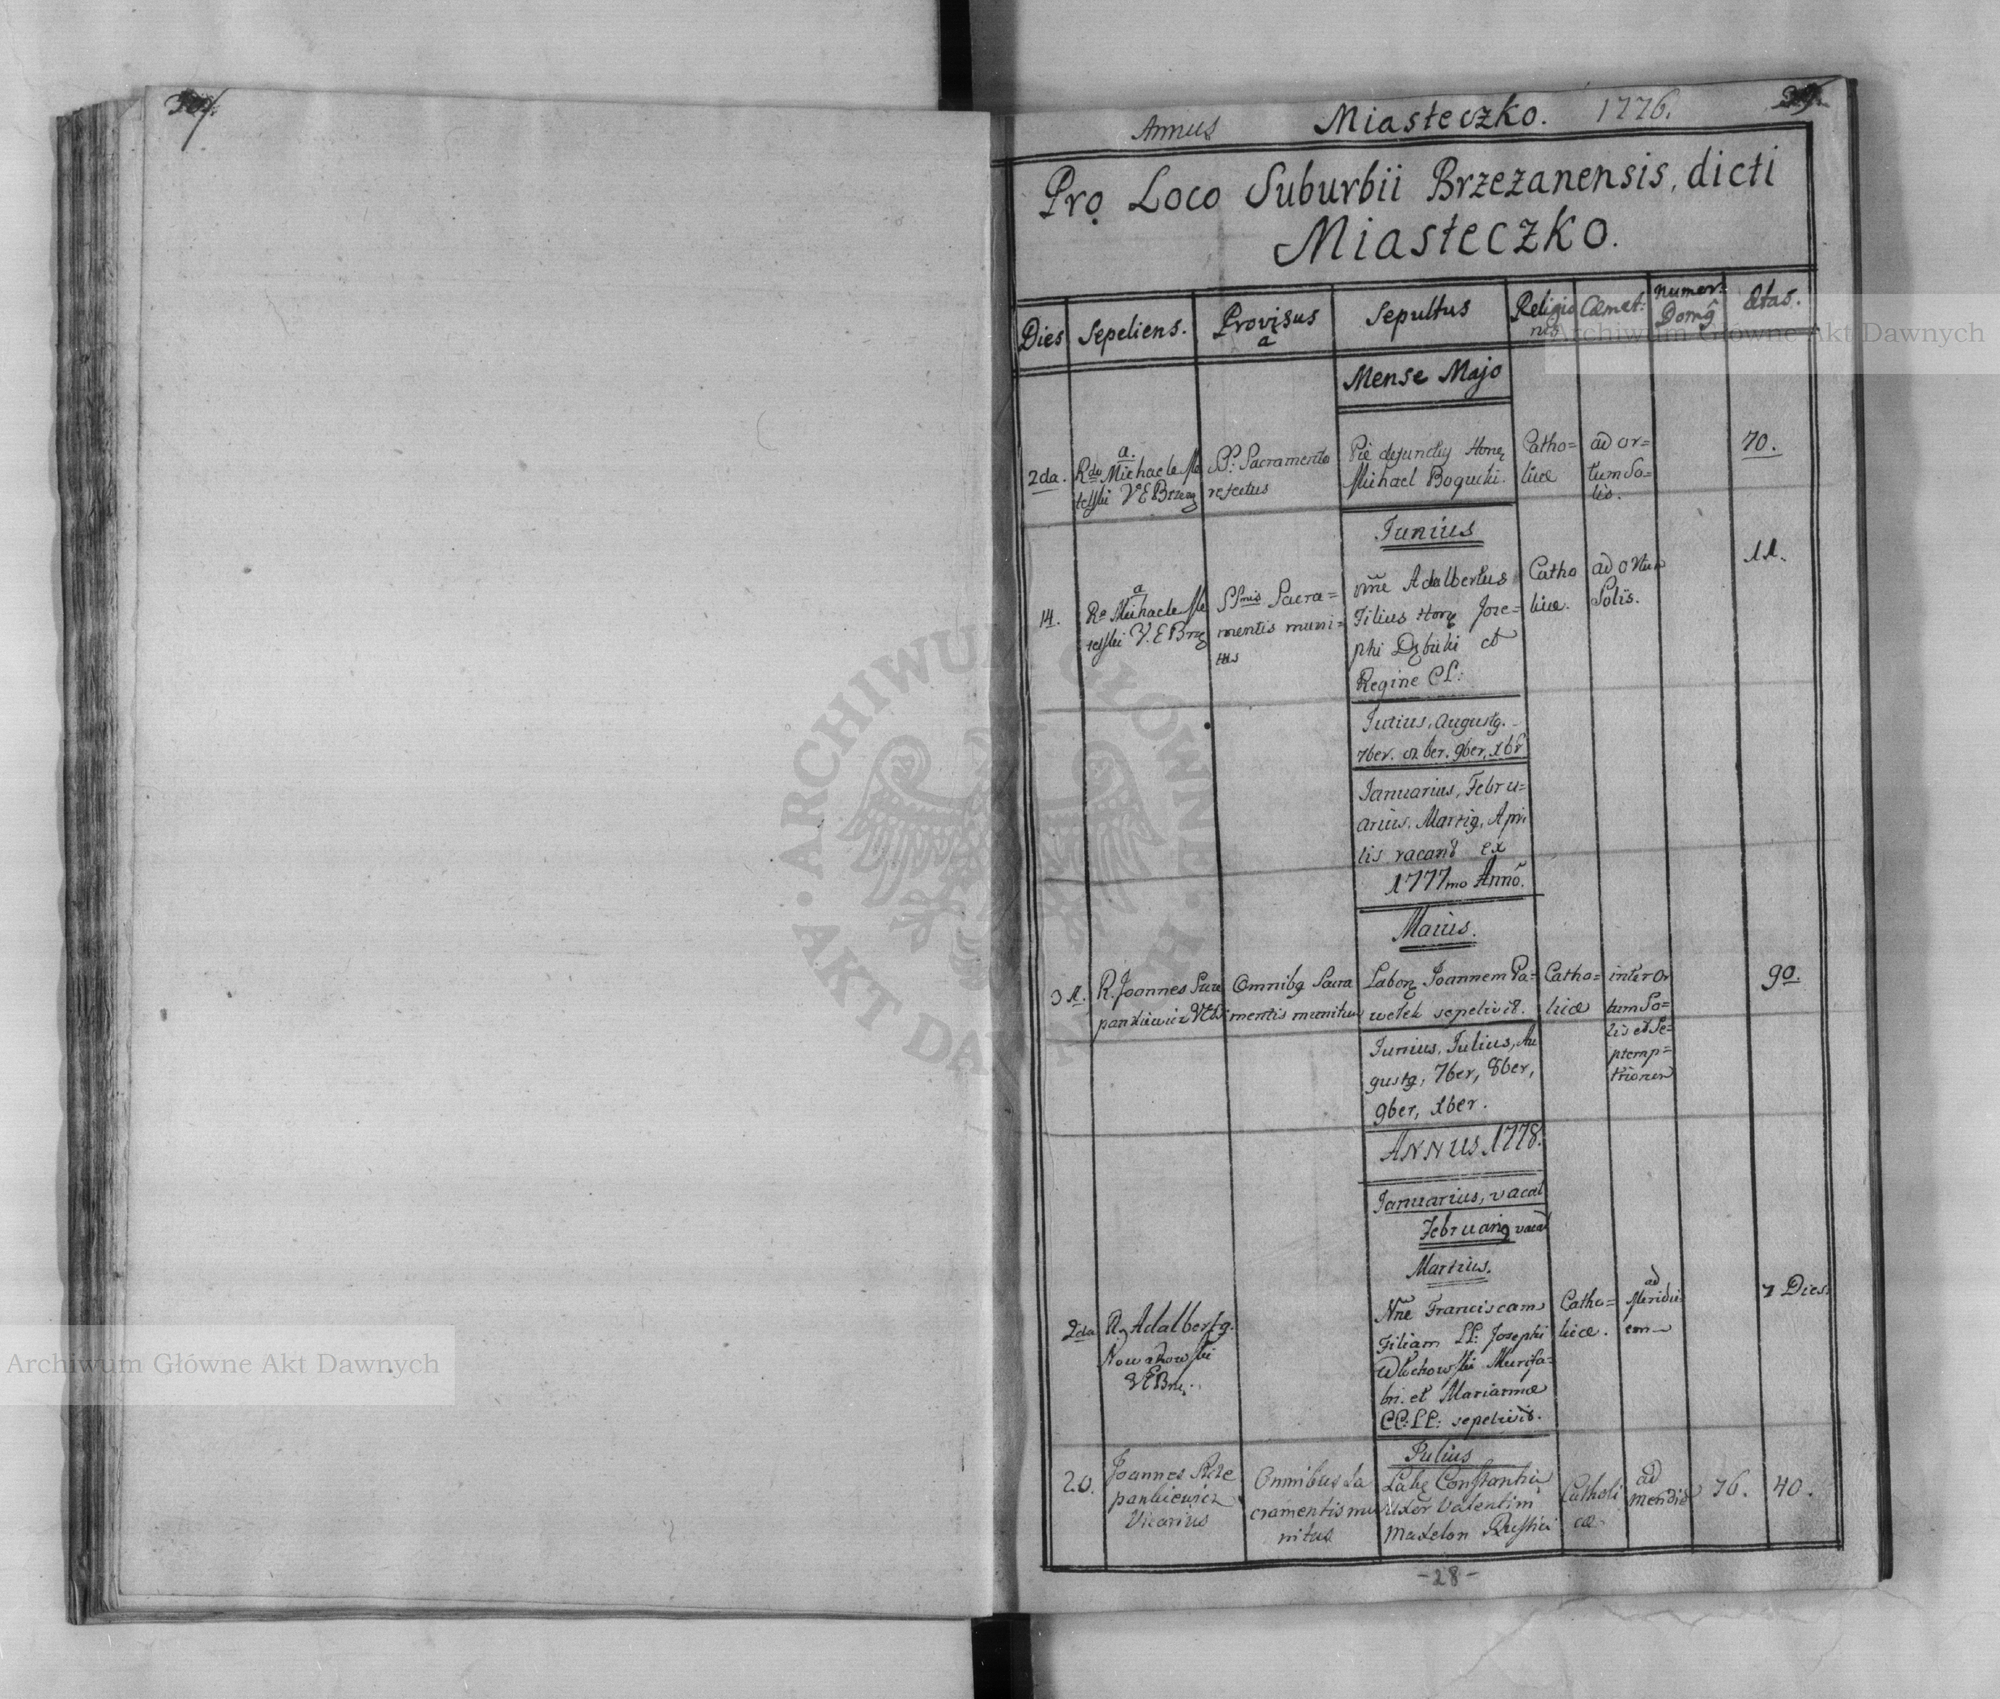 Annus Miasteczko. 1776.
Pro Loco Suburbii Brzeżanensis, dicti
Miasteczko.
Dies Sepeliens. Provisus a Sepultus Religio Cæmet: numer: Ætas.
Mense Majo
2da.
a.
Rdo Michaele
V E Brzez
SS: Sacramento
refectus
Pie defunctus Hone
Michael Bogucki.
Catho=
licæ
ad or=
tum So=
lis.
70.
Junius
14.
a
Ro Michaele
V. E Brze
SSmis Sacra=
mentis muni=
tus
Adalbertus
Filius Jose=
phi et
Regine CL:
Catho
licæ.
ad ortum
Solis.
11.
Julius, Augustq.
7ber. 8ber. 9ber, xbr
Januarius, Febru=
arius, Martiq, Apri
lis vacant ex
1777mo Anno.
Maius.
31.
R. Joannes
Omnibq Sacra
mentis munitus
Joannem Pa=
wełek sepelivit.
Catho=
licæ
inter or
tum So=
lis et Se=
ptemp=
trionem
90.
Junius, Julius, Au
gustq, 7ber, 8ber,
9ber, xber.
ANNUS 1778.
Januarius, vacat
Februariq vacat
Martius.
2da
R. Adalbertq.
Nowakowski
V E Brz.
Franciscam
Filiam LL: Josephi
Murifa=
bri et Mariannæ
CC: LL: sepelivit.
Catho=
licæ.
ad
Meridi=
em
7 Dies.
Julius
20.
Joannes
Vicarius
Omnibus Sa
cramentis mu
nitus
Constantia
Uxor Valentini
Catholi
cæ.
ad
Meridie
76.
40.
-28-
Archiwum Główne Akt Dawnych
Archiwum Główne Akt Dawnych
ARCHIWUM GŁÓWNE · AKT DAWNYCH ·